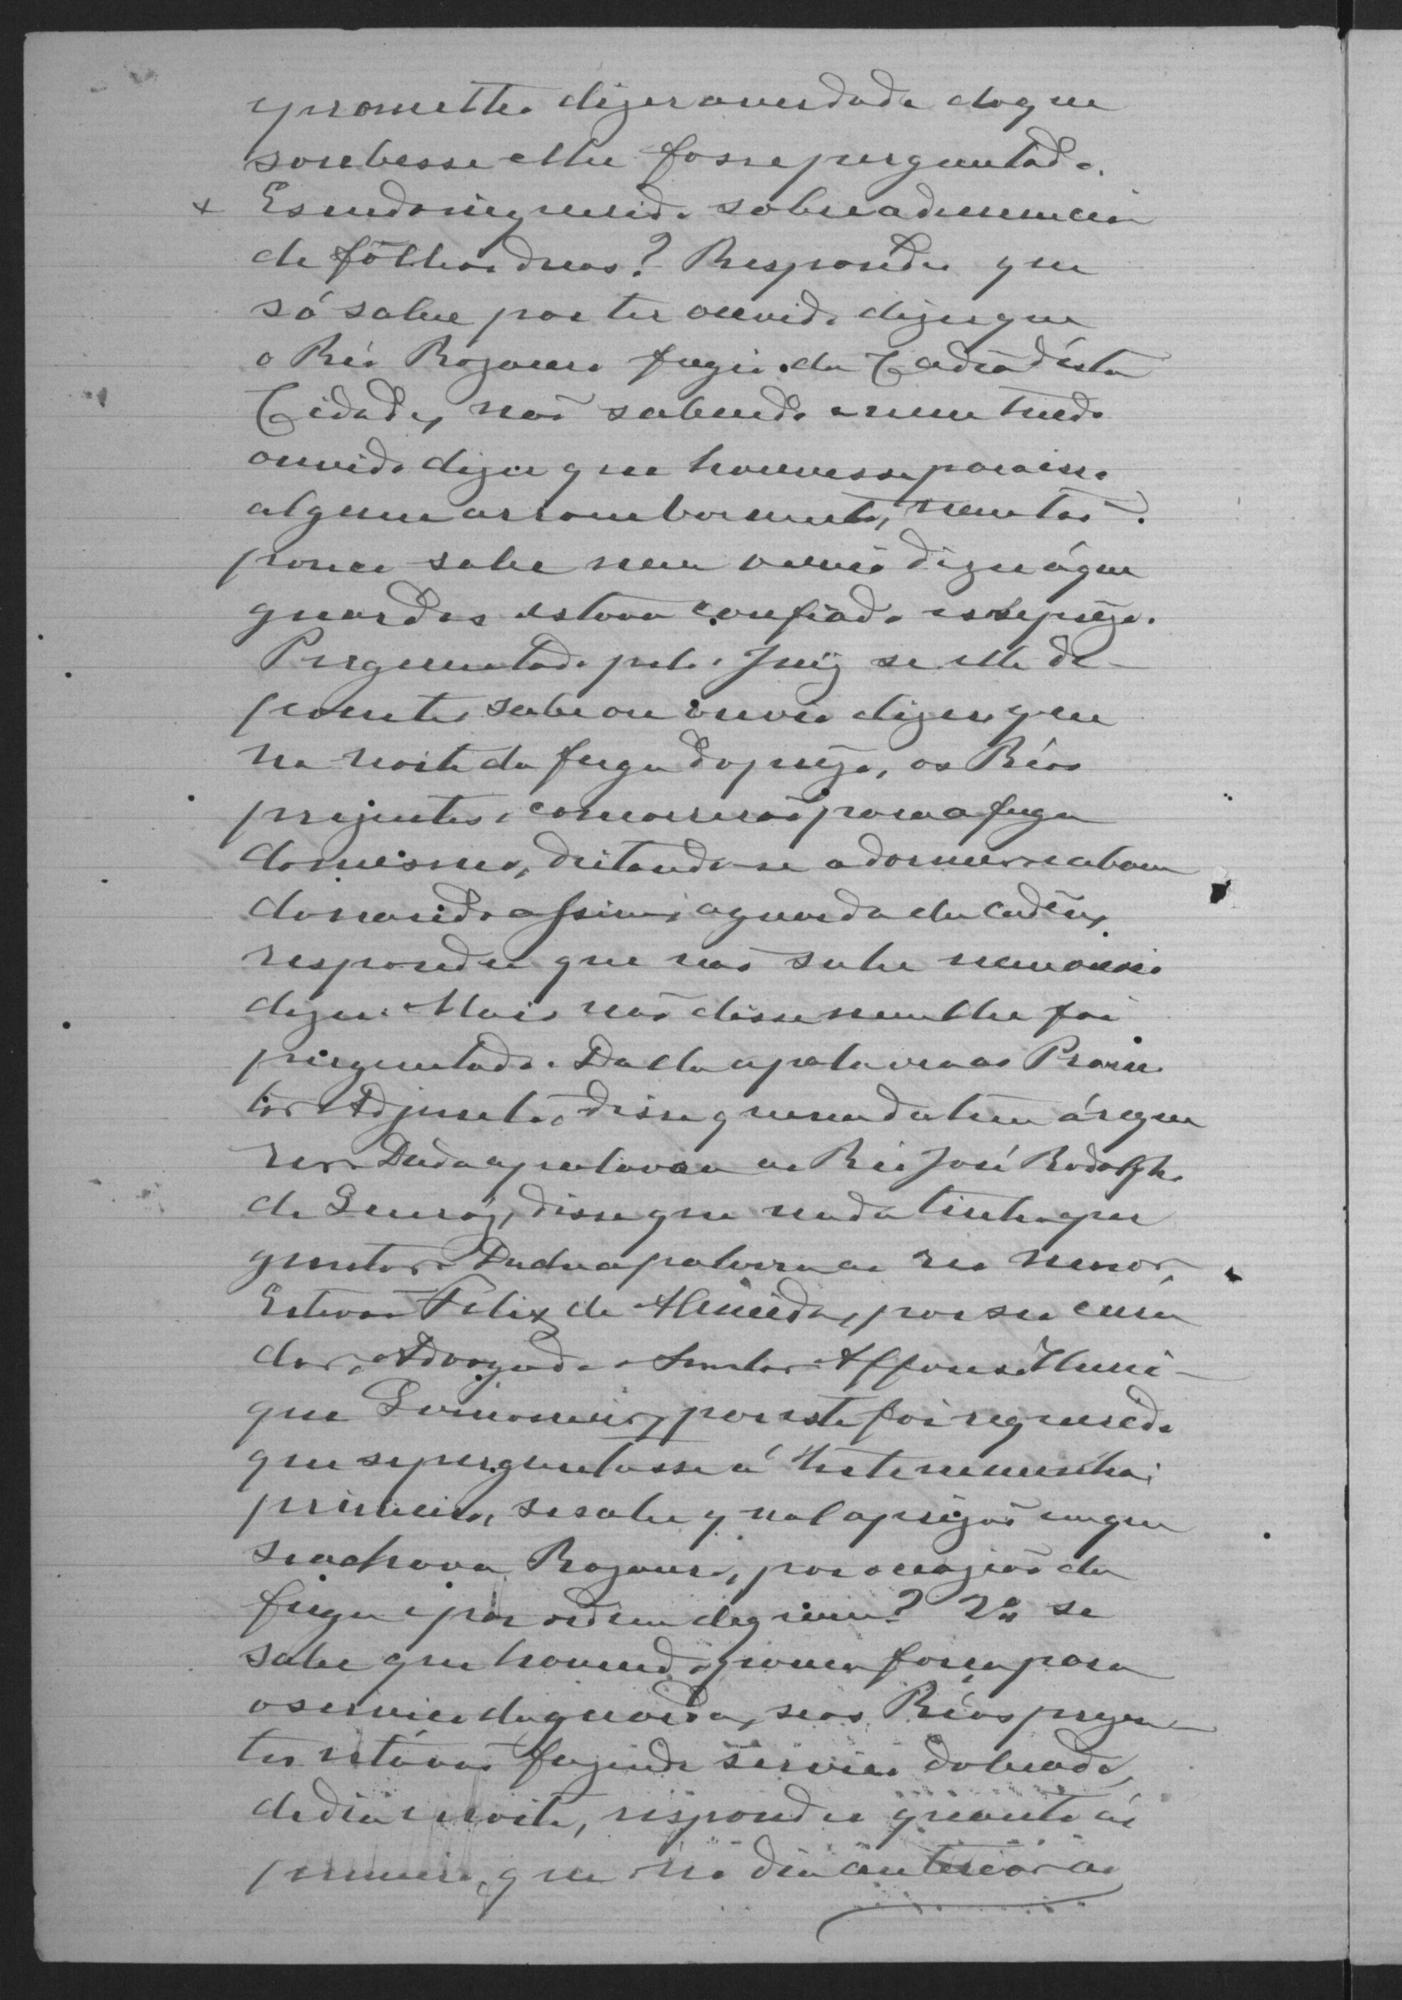 prometteo dizer a verdade do que
soubesse e lhe fosse perguntado.
E sendo inquerido sobre a denuncia
de folhas duas? Respondeu que
só sabe por ter ouvido dizer que
o Réo Rozauro fugio da Cadeia d'esta
Cidade, não sabendo e nem tendo
ouvido dizer que houvesse para isso
algum arrombamento, nem tão
pouco sabe nem ouvio dizer á que
guardas estava confiado esse prezo.
Perguntado pelo Juiz se elle de-
poente, sabe ou ouvio dizer, que
na noite da fuga do prezo, os Réos
prezentes, concorrerão para a fuga
do mesmo, deitando-se a dormir e aban
donando assim a guarda da cadeia,
respondeu que não sabe nem ouvio
dizer. Mais não disse nem lhe foi
perguntado. Dada a palavra ao Promo
tor Adjunto, disse que nada tem á reque
rer. Dada a palavra ao Réo José Rodolpho
de Queiroz, disse que nada tinha a per
guntar. Dada a palavra ao réo menor
Estevão Felix de Almeida, por seu cura
dor, Advogado Doutor Affonso Henri-
que, por este foi requerido
que se perguntasse á testemunha;
primeiro, se sabe qual a prizão em que
se achava Rozauro, por occazião da
fuga e por ordem de quem? 2º se
sabe que havendo pouca força para
o serviço da guarda, se os Réos prezen-
tes estavão fazendo serviço dobrado,
de dia e noite, respondeu quanto ao
primeiro, que no dia anterior ao